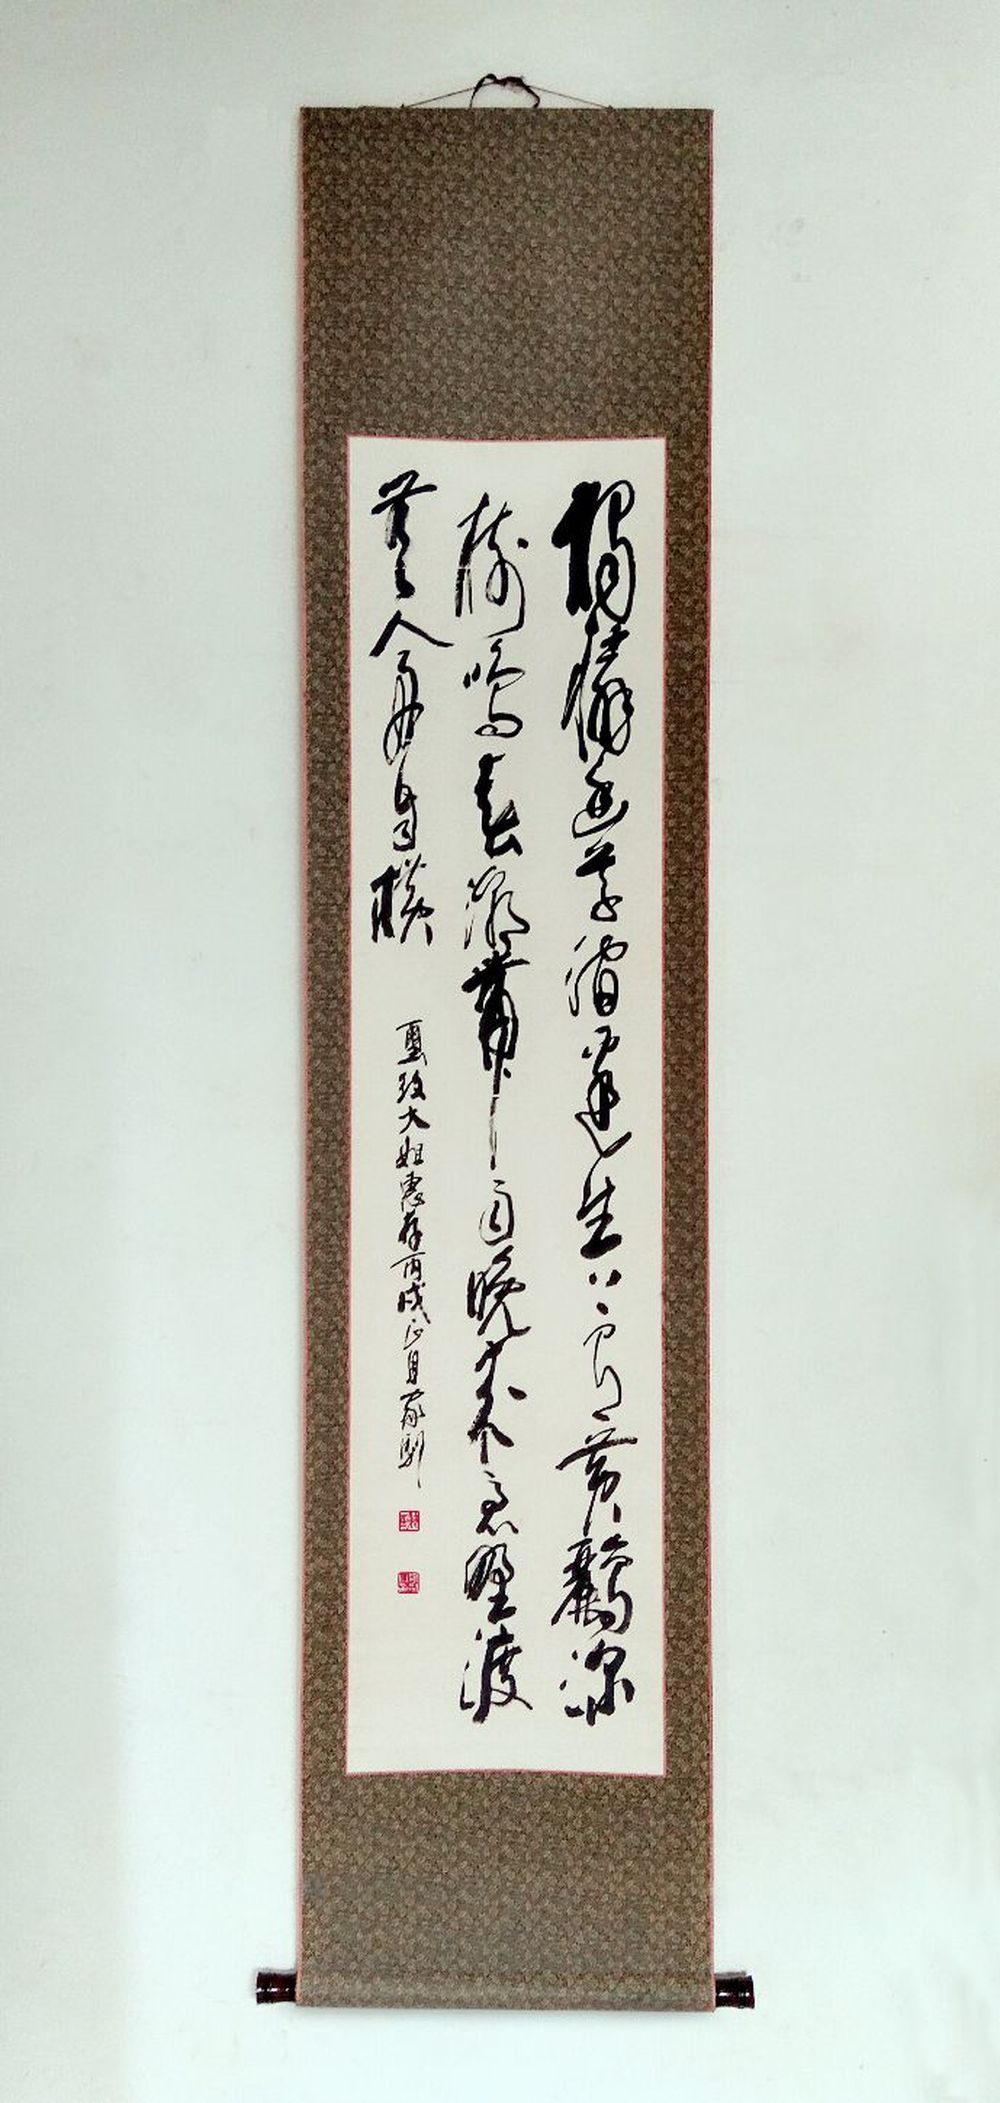 獨憐幽草澗邊生上有黃鸝深
樹鳴春潮帶雨晚來急野渡
無人舟自橫
玫大姐惠存丙戌正月家